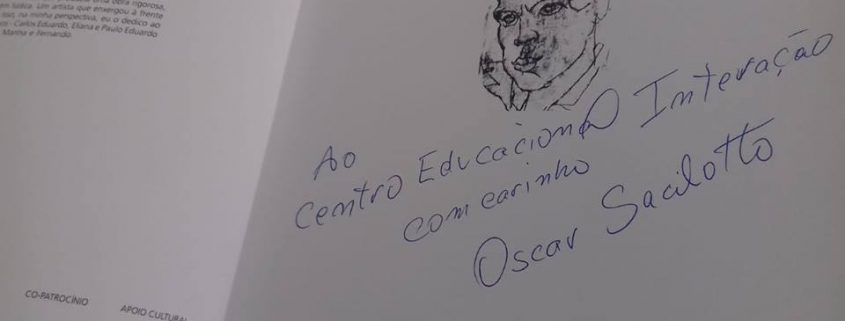 uma obra rigorosa,
em lúdica. Um artista que enxergou à frente
isso, na minha perspectiva, eu o dedico ao
os - Carlos Eduardo, Eliana e Paulo Eduardo
Marina e Fernando.
CO-PATROCÍNIO
APOIO CULTURAL
Ao
Centro Educacional Interação
com carinho
Oscar Sacilotto